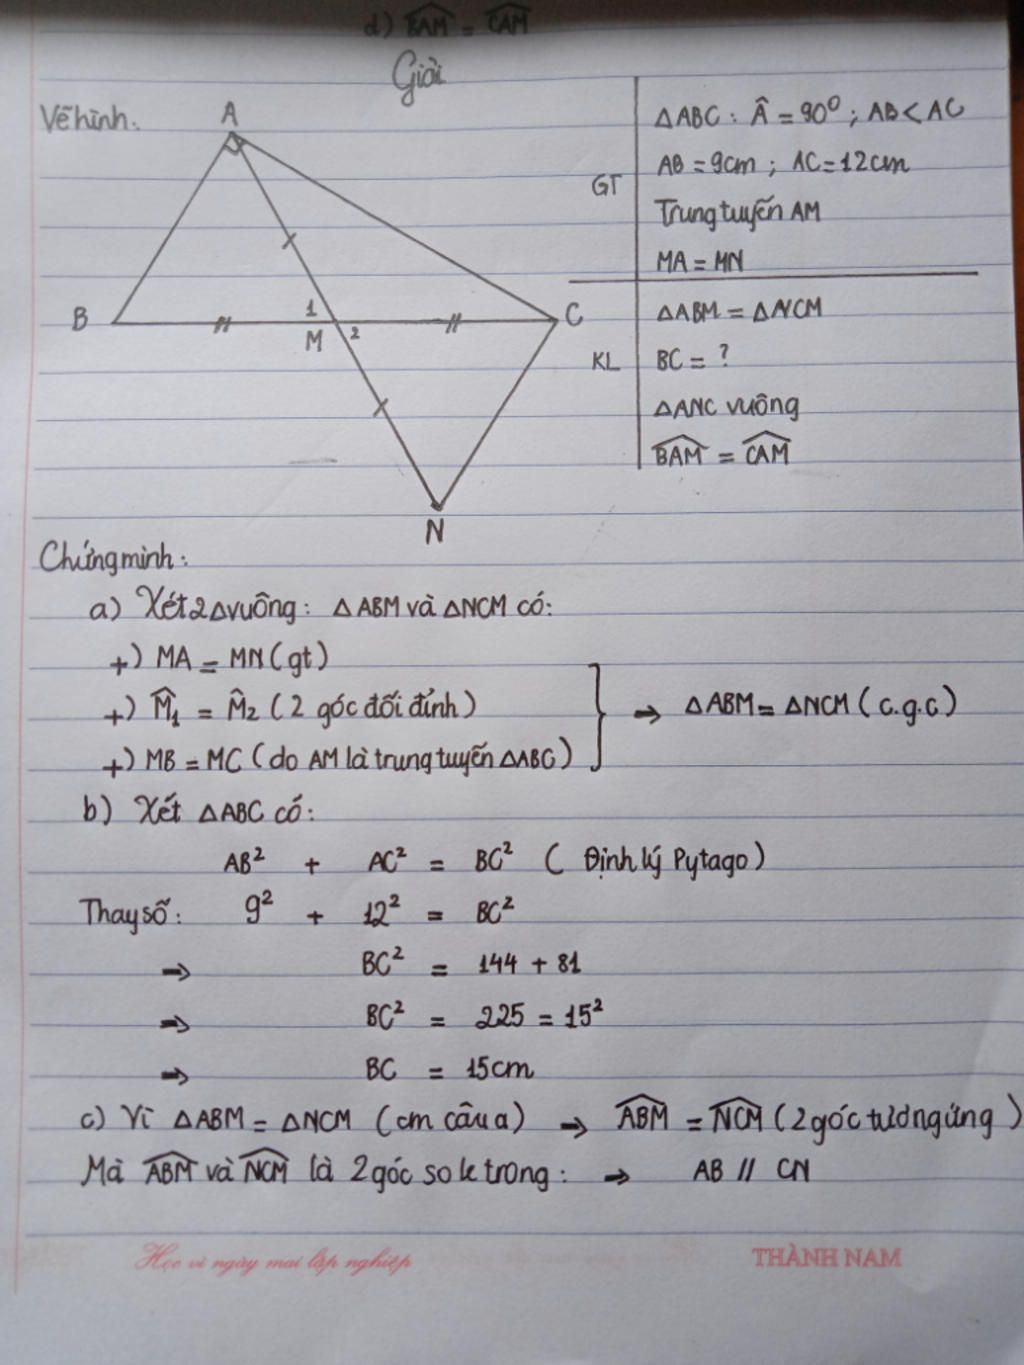 d) BAM = CAM
Giải
Vẽ hình:
A
B
1
M
2
C
N
GT
ΔABC : Â = 90° ; AB < AC
AB = 9cm ; AC = 12cm
Trung tuyến AM
MA = MN
KL
ΔABM = ΔNCM
BC = ?
ΔANC vuông
BAM = CAM
Chứng minh:
a) Xét 2Δvuông: ΔABM và ΔNCM có:
+) MA = MN (gt)
+) M̂1 = M̂2 (2 góc đối đỉnh)
+) MB = MC (do AM là trung tuyến ΔABC)
⇒ ΔABM = ΔNCM (c.g.c)
b) Xét ΔABC có:
AB² + AC² = BC² (Định lý Pytago)
Thay số: 9² + 12² = BC²
⇒ BC² = 144 + 81
⇒ BC² = 225 = 15²
⇒ BC = 15cm
c) Vì ΔABM = ΔNCM (cm câu a) ⇒ ABM = NCM (2 góc tương ứng)
Mà ABM và NCM là 2 góc so le trong: ⇒ AB // CN
Học vì ngày mai lập nghiệp
THÀNH NAM